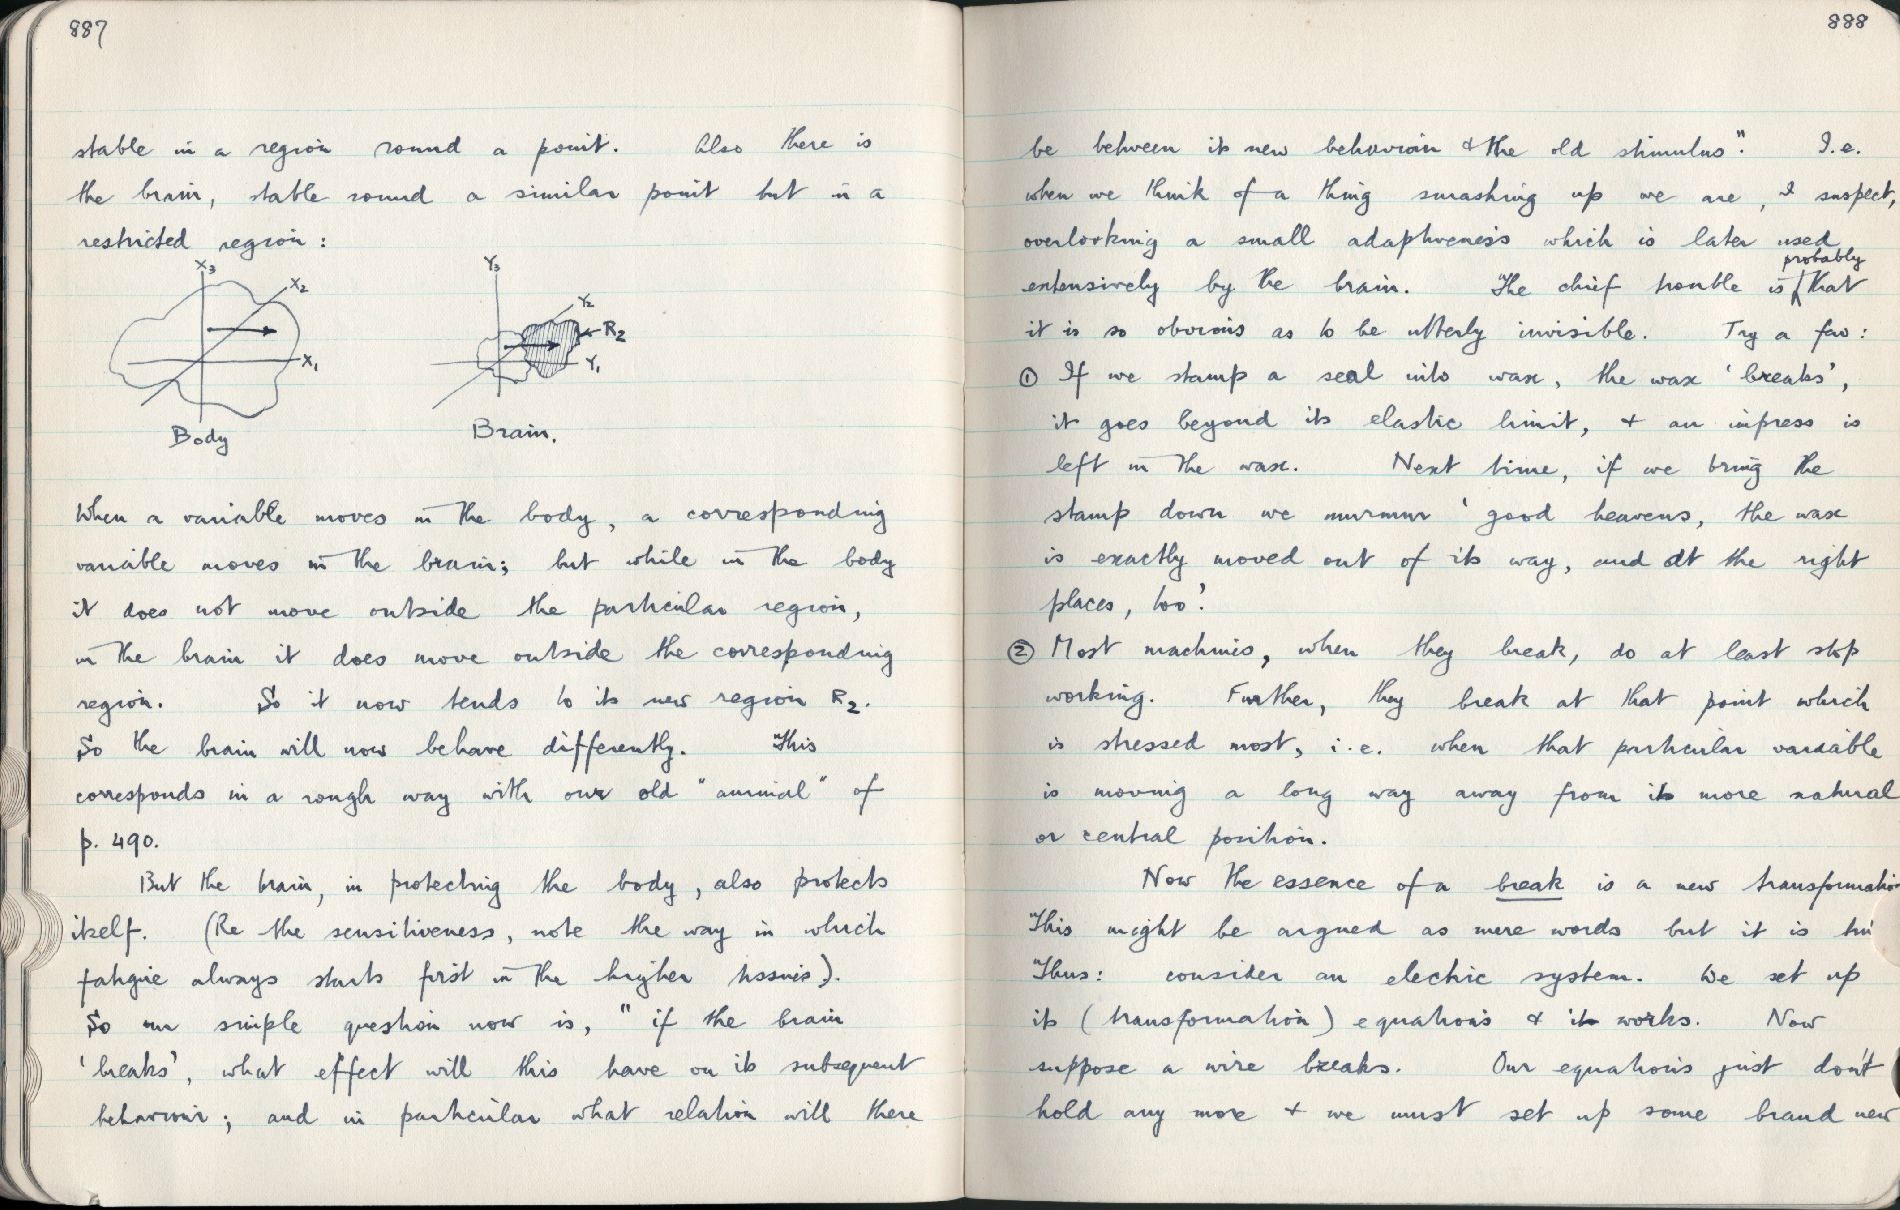 887
stable in a region round a point. Also there is
the brain, stable round a similar point but in a
restricted region:
X3
X2
X1
Body
Y3
Y2
R2
Y1
Brain.
When a variable moves in the body, a corresponding
variable moves in the brain; but while in the body
it does not move outside the particular region,
in the brain it does move outside the corresponding
region. So it now tends to its new region R2.
So the brain will now behave differently. This
corresponds in a rough way with our old "animal" of
p. 490.
But the brain, in protecting the body, also protects
itself. (Re the sensitiveness, note the way in which
fatigue always starts first in the higher tissues).
So our simple question now is, "if the brain
'breaks', what effect will this have on its subsequent
behaviour; and in particular what relation will there
888
be between its new behaviour & the old stimulus". I.e.
when we think of a thing smashing up we are, I suspect,
overlooking a small adaptiveness which is later used
extensively by the brain. The chief trouble is probably that
it is so obvious as to be utterly invisible. Try a few:
① If we stamp a seal into wax, the wax 'breaks',
it goes beyond its elastic limit, & an impress is
left in the wax. Next time, if we bring the
stamp down we murmur 'good heavens, the wax
is exactly moved out of its way, and at the right
places, too'.
② Most machines, when they break, do at least stop
working. Further, they break at that point which
is stressed most, i.e. when that particular variable
is moving a long way away from its more natural
or central position.
Now the essence of a break is a new transformation
This might be argued as mere words but it is
Thus: consider an electric system. We set up
its (transformation) equations & it works. Now
suppose a wire breaks. Our equations just don't
hold any more & we must set up some brand new